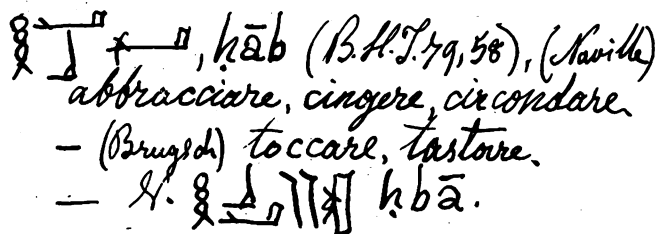 𓎛𓂝𓃀𓏴𓂝, ḥāb (B.H.I.79,58), (Naville)
abbracciare, cingere, circondare.
— (Brugsch) toccare, tastare.
— V. 𓎛𓃀𓂝 ḥbā.